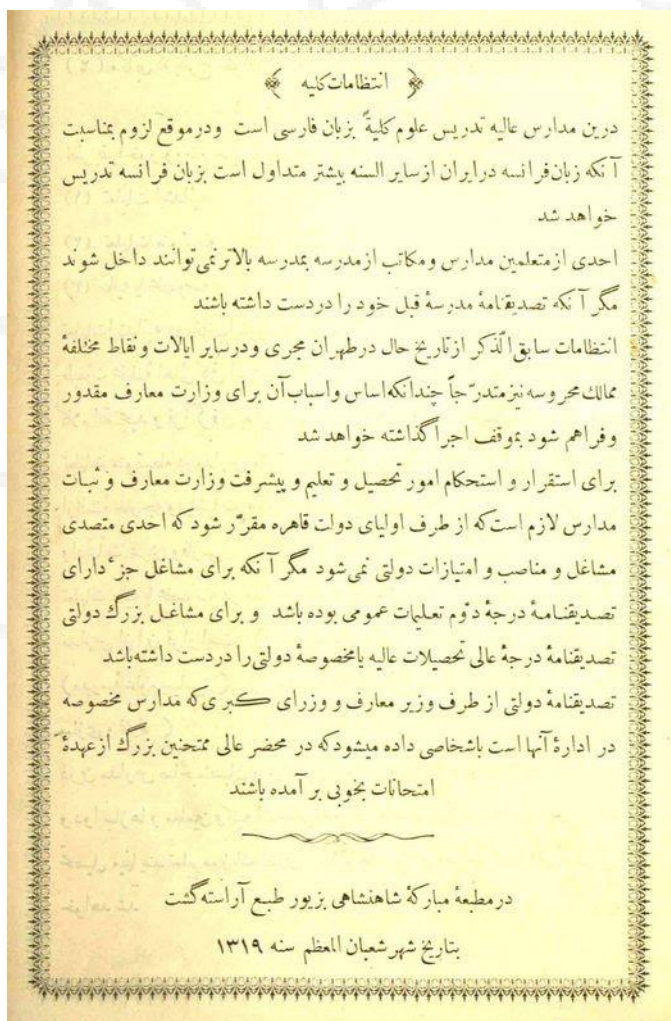 انتظامات کلیه
درین مدارس عالیه تدریس علوم کلیةً بزبان فارسی است ودرموقع لزوم بمناسبت
آنکه زبان فرانسه درایران ازسایر السنه بیشتر متداول است بزبان فرانسه تدریس
خواهد شد
احدی ازمتعلمین مدارس ومکاتب ازمدرسه بمدرسه بالاتر نمی توانند داخل شوند
مگر آنکه تصدیقنامهٔ مدرسهٔ قبل خود را دردست داشته باشند
انتظامات سابق الذکر ازتاریخ حال درطهران مجری ودرسایر ایالات ونقاط مختلفهٔ
ممالك محروسه نیز متدرّجاً چندانکه اساس واسباب آن برای وزارت معارف مقدور
وفراهم شود بموقف اجرا گذاشته خواهد شد
برای استقرار و استحکام امور تحصیل و تعلیم و پیشرفت وزارت معارف و ثبات
مدارس لازم است که از طرف اولیای دولت قاهره مقرّر شود که احدی متصدی
مشاغل و مناصب و امتیازات دولتی نمی شود مگر آنکه برای مشاغل جزء دارای
تصدیقنامهٔ درجهٔ دوّم تعلیمات عمومی بوده باشد و برای مشاغل بزرگ دولتی
تصدیقنامهٔ درجهٔ عالی تحصیلات عالیه یامخصوصهٔ دولتی را دردست داشته باشد
تصدیقنامهٔ دولتی از طرف وزیر معارف و وزرای کبری که مدارس مخصوصه
در ادارهٔ آنها است باشخاصی داده میشود که در محضر عالی ممتحنین بزرگ ازعهدهٔ
امتحانات بخوبی برآمده باشند
درمطبعهٔ مبارکهٔ شاهنشاهی بزیور طبع آراسته گشت
بتاریخ شهر شعبان المعظم سنه ۱۳۱۹